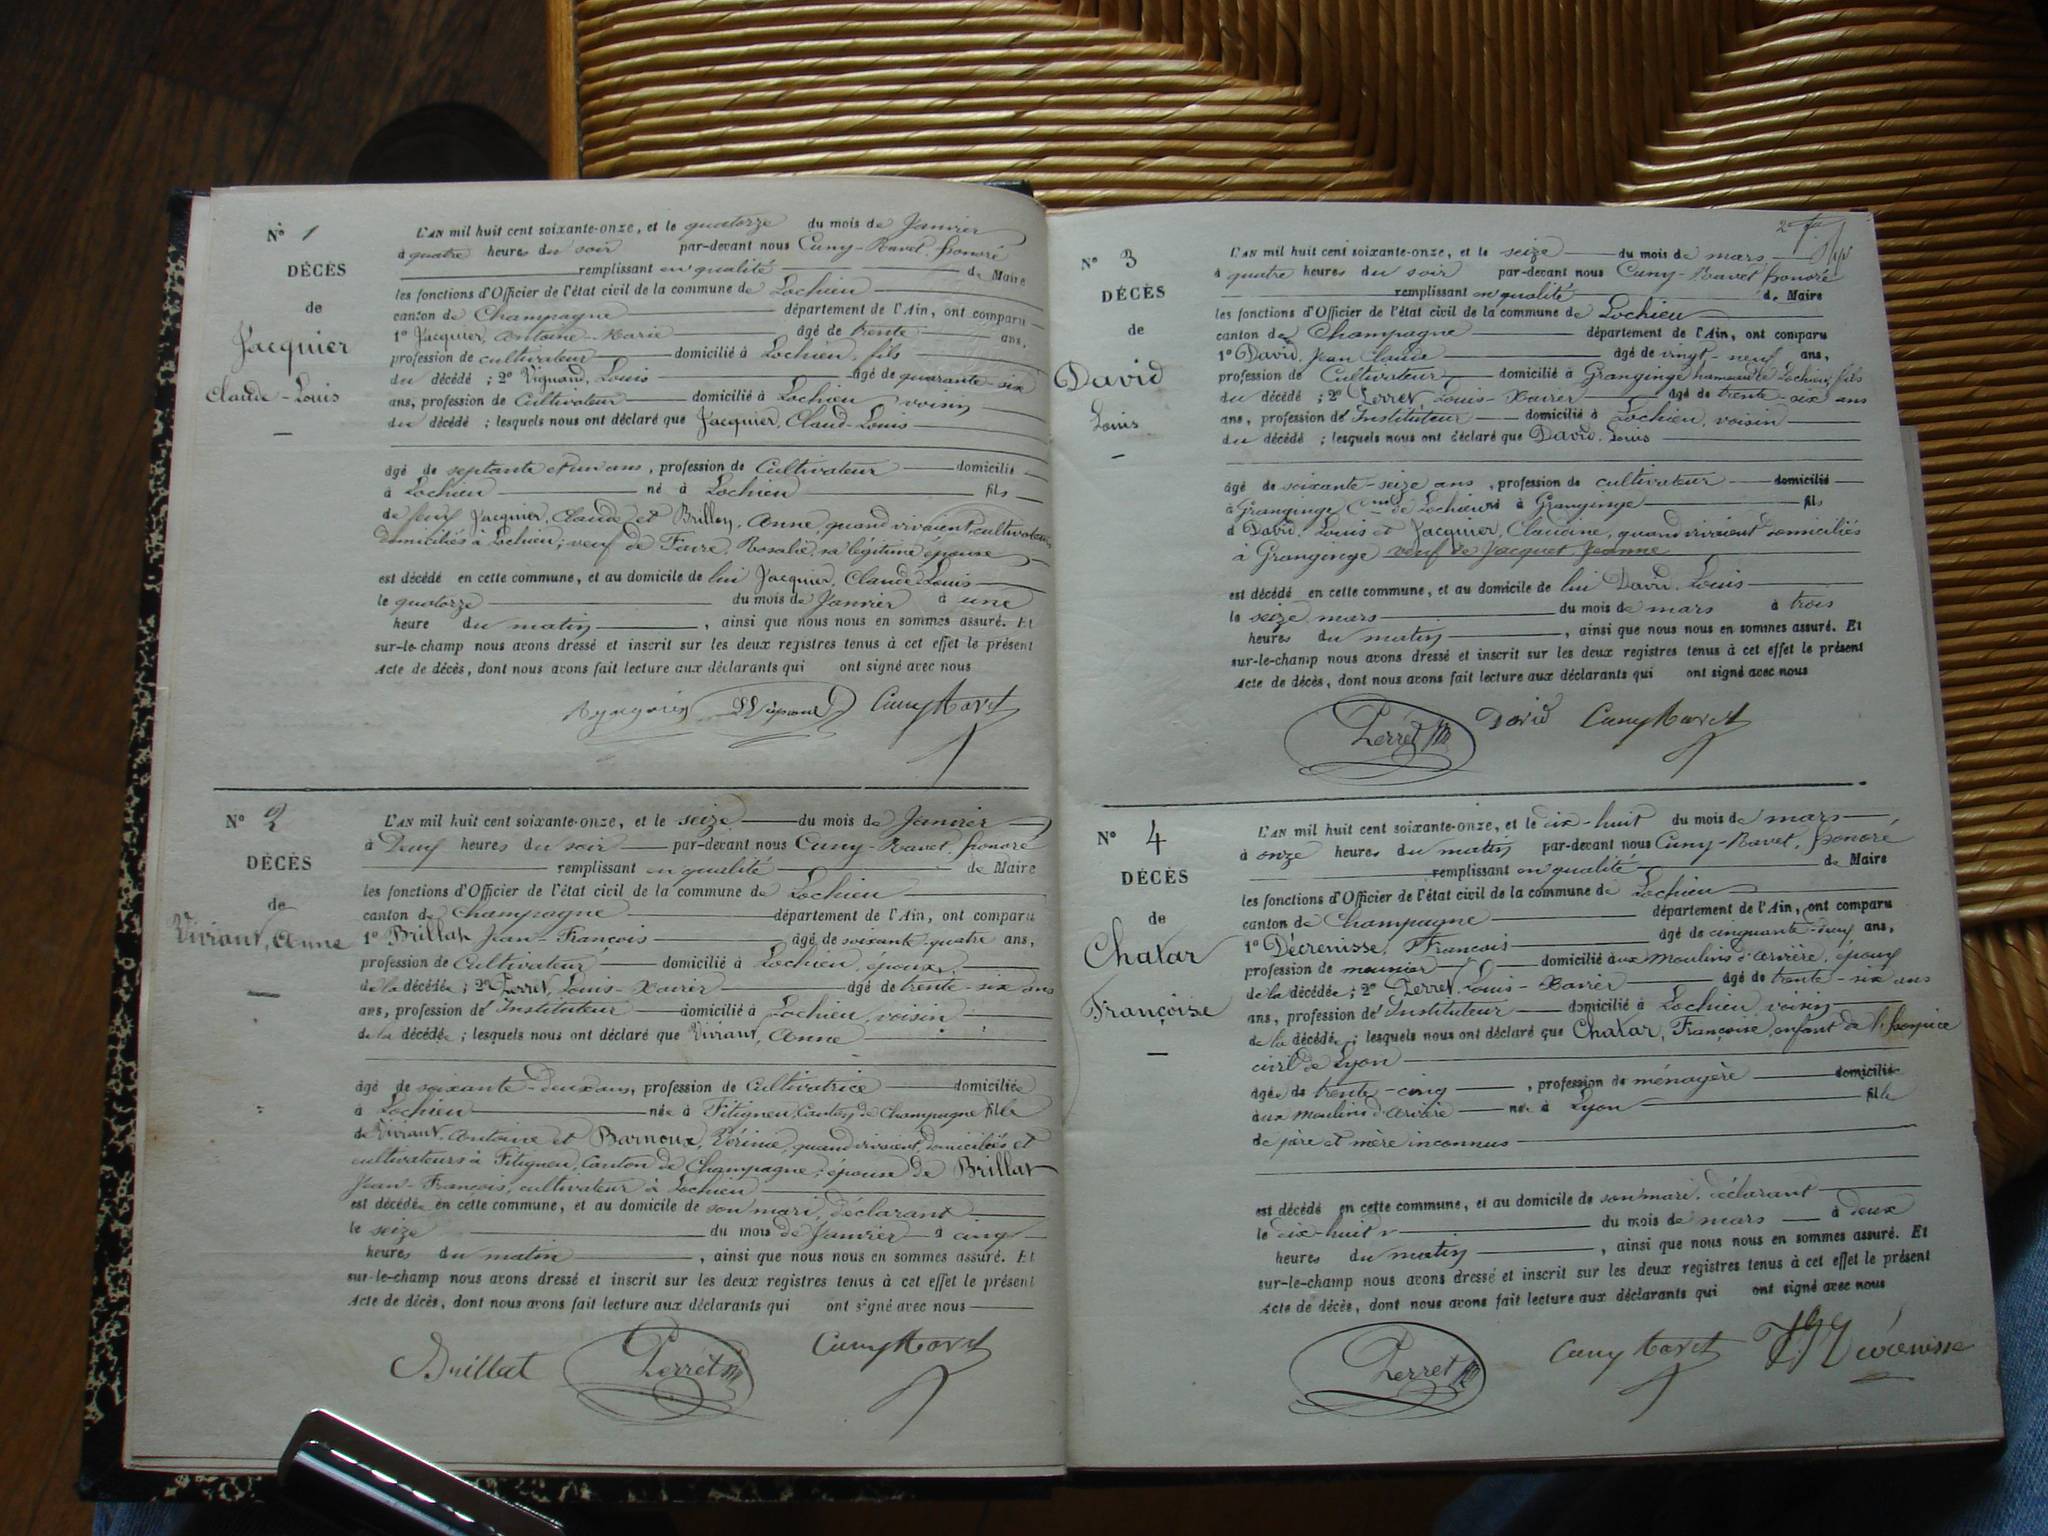 N° 1
DÉCÈS
de
Jacquier
Claude-Louis
L'AN mil huit cent soixante-onze, et le quatorze du mois de Janvier
à quatre heures du soir par-devant nous Cuny-Ravet, honoré
remplissant en qualité de Maire
les fonctions d'Officier de l'état civil de la commune de Lochieu
canton de Champagne département de l'Ain, ont comparu
1° Jacquier, Antoine-Marie âgé de trente ans,
profession de cultivateur domicilié à Lochieu, fils
du décédé ; 2° Vignand, Louis âgé de quarante-six
ans, profession de Cultivateur domicilié à Lochieu voisin
du décédé ; lesquels nous ont déclaré que Jacquier, Claud-Louis
âgé de septante et un ans, profession de Cultivateur domicilié
à Lochieu né à Lochieu fils
de feux Jacquier, Claude et Brillon, Anne, quand vivaient cultivateurs
domiciliés à Lochieu; veuf de Favre, Rosalie, sa légitime épouse
est décédé en cette commune, et au domicile de lui Jacquier, Claude Louis
le quatorze du mois de Janvier à une
heure du matin, ainsi que nous nous en sommes assuré. Et
sur-le-champ nous avons dressé et inscrit sur les deux registres tenus à cet effet le présent
Acte de décès, dont nous avons fait lecture aux déclarants qui ont signé avec nous
Cuny Ravet
N° 2
DÉCÈS
de
Viviant, Anne
L'AN mil huit cent soixante-onze, et le seize du mois de Janvier
à Deux heures du soir par-devant nous Cuny-Ravet, honoré
remplissant en qualité de Maire
les fonctions d'Officier de l'état civil de la commune de Lochieu
canton de Champagne département de l'Ain, ont comparu
1° Brillat Jean-François âgé de soixante-quatre ans,
profession de Cultivateur domicilié à Lochieu, époux
de la décédée ; 2° Perret, Louis-Xavier âgé de trente-six ans
ans, profession d'Instituteur domicilié à Lochieu, voisin
de la décédée ; lesquels nous ont déclaré que Viviant, Anne
âgé de soixante-deux ans, profession de Cultivatrice domiciliée
à Lochieu née à Fitigneu, Canton de Champagne fille
de Viviant, Antoine et Barnoux, quand vivaient, domiciliés et
cultivateurs à Fitignieu, Canton de Champagne; épouse de Brillat
Jean-François, cultivateur à Lochieu
est décédée en cette commune, et au domicile de son mari, déclarant
le seize du mois de Janvier à cinq
heures du matin, ainsi que nous nous en sommes assuré. Et
sur-le-champ nous avons dressé et inscrit sur les deux registres tenus à cet effet le présent
Acte de décès, dont nous avons fait lecture aux déclarants qui ont signé avec nous
Brillat Perret Cuny Ravet
N° 3
DÉCÈS
de
David
Louis
L'AN mil huit cent soixante-onze, et le seize du mois de mars
à quatre heures du soir par-devant nous Cuny-Ravet honoré
remplissant en qualité de Maire
les fonctions d'Officier de l'état civil de la commune de Lochieu
canton de Champagne département de l'Ain, ont comparu
1° David, Jean Claude âgé de vingt-neuf ans,
profession de Cultivateur domicilié à Granginge hameau de Lochieu, fils
du décédé ; 2° Perret, Louis-Xavier âgé de trente-six ans
ans, profession d'Instituteur domicilié à Lochieu, voisin
du décédé ; lesquels nous ont déclaré que David, Louis
âgé de soixante-seize ans, profession de cultivateur domicilié
à Granginge Cne de Lochieu né à Granginge fils
d David, Louis et Jacquier, Claudine, quand vivaient domiciliés
à Granginge veuf de Jacquet Jeanne
est décédé en cette commune, et au domicile de lui David, Louis
le seize mars du mois de mars à trois
heures du matin, ainsi que nous nous en sommes assuré. Et
sur-le-champ nous avons dressé et inscrit sur les deux registres tenus à cet effet le présent
Acte de décès, dont nous avons fait lecture aux déclarants qui ont signé avec nous
Perret David Cuny Ravet
N° 4
DÉCÈS
de
Chatar
Françoise
L'AN mil huit cent soixante-onze, et le dix-huit du mois de mars
à onze heures du matin par-devant nous Cuny-Ravet, honoré
remplissant en qualité de Maire
les fonctions d'Officier de l'état civil de la commune de Lochieu
canton de Champagne département de l'Ain, ont comparu
1° Décrenisse, François âgé de cinquante-neuf ans,
profession de meunier domicilié aux moulins d'arvière, époux
de la décédée ; 2° Perret, Louis-Xavier âgé de trente-six ans
ans, profession d'Instituteur domicilié à Lochieu voisin
de la décédée ; lesquels nous ont déclaré que Chatar, Françoise, enfant de l'hospice
civil de Lyon
âgé de trente-cinq, profession de ménagère domicilié
aux moulins d'arvière née à Lyon fille
de père et mère inconnus
est décédé en cette commune, et au domicile de son mari, déclarant
le dix-huit du mois de mars à deux
heures du matin, ainsi que nous nous en sommes assuré. Et
sur-le-champ nous avons dressé et inscrit sur les deux registres tenus à cet effet le présent
Acte de décès, dont nous avons fait lecture aux déclarants qui ont signé avec nous
Perret Cuny Ravet Décrenisse